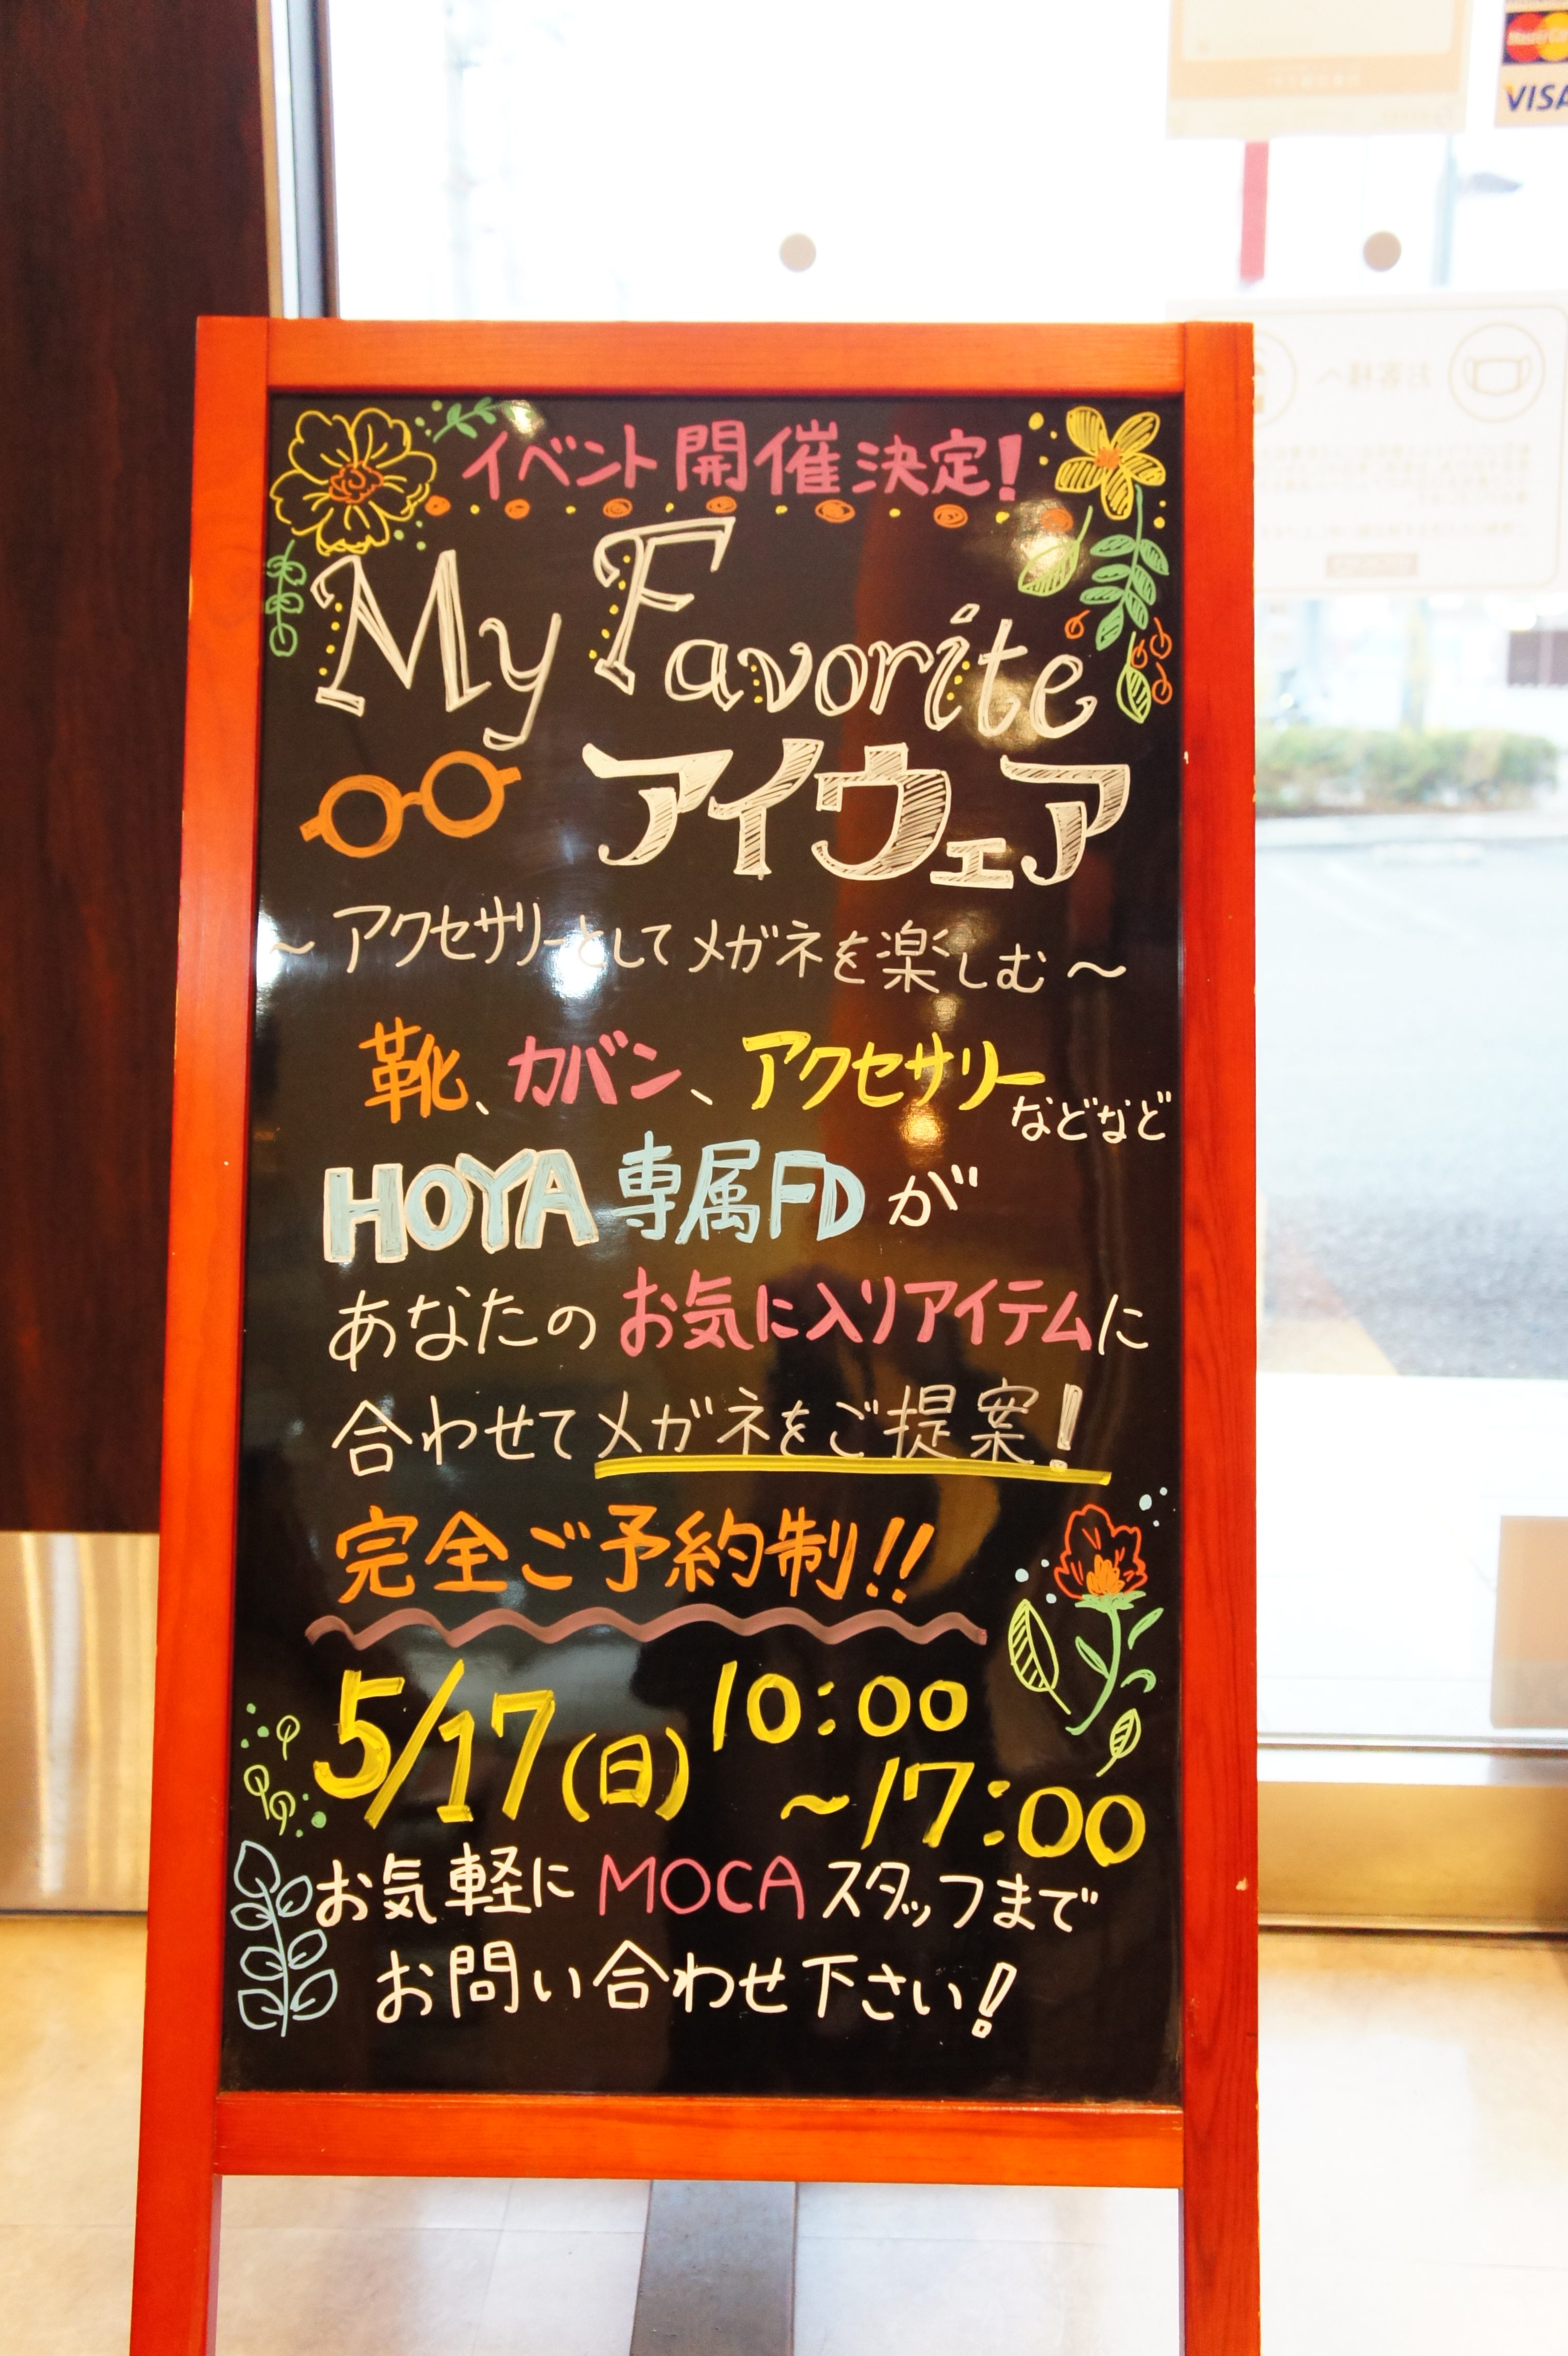 MasterCard
VISA
イベント開催決定!
My Favorite
アイウェア
～アクセサリーとしてメガネを楽しむ～
靴、カバン、アクセサリーなどなど
HOYA専属FDが
あなたのお気に入りアイテムに
合わせてメガネをご提案!
完全ご予約制!!
5/17(日) 10:00
～17:00
お気軽にMOCAスタッフまで
お問い合わせ下さい!
お客様へ